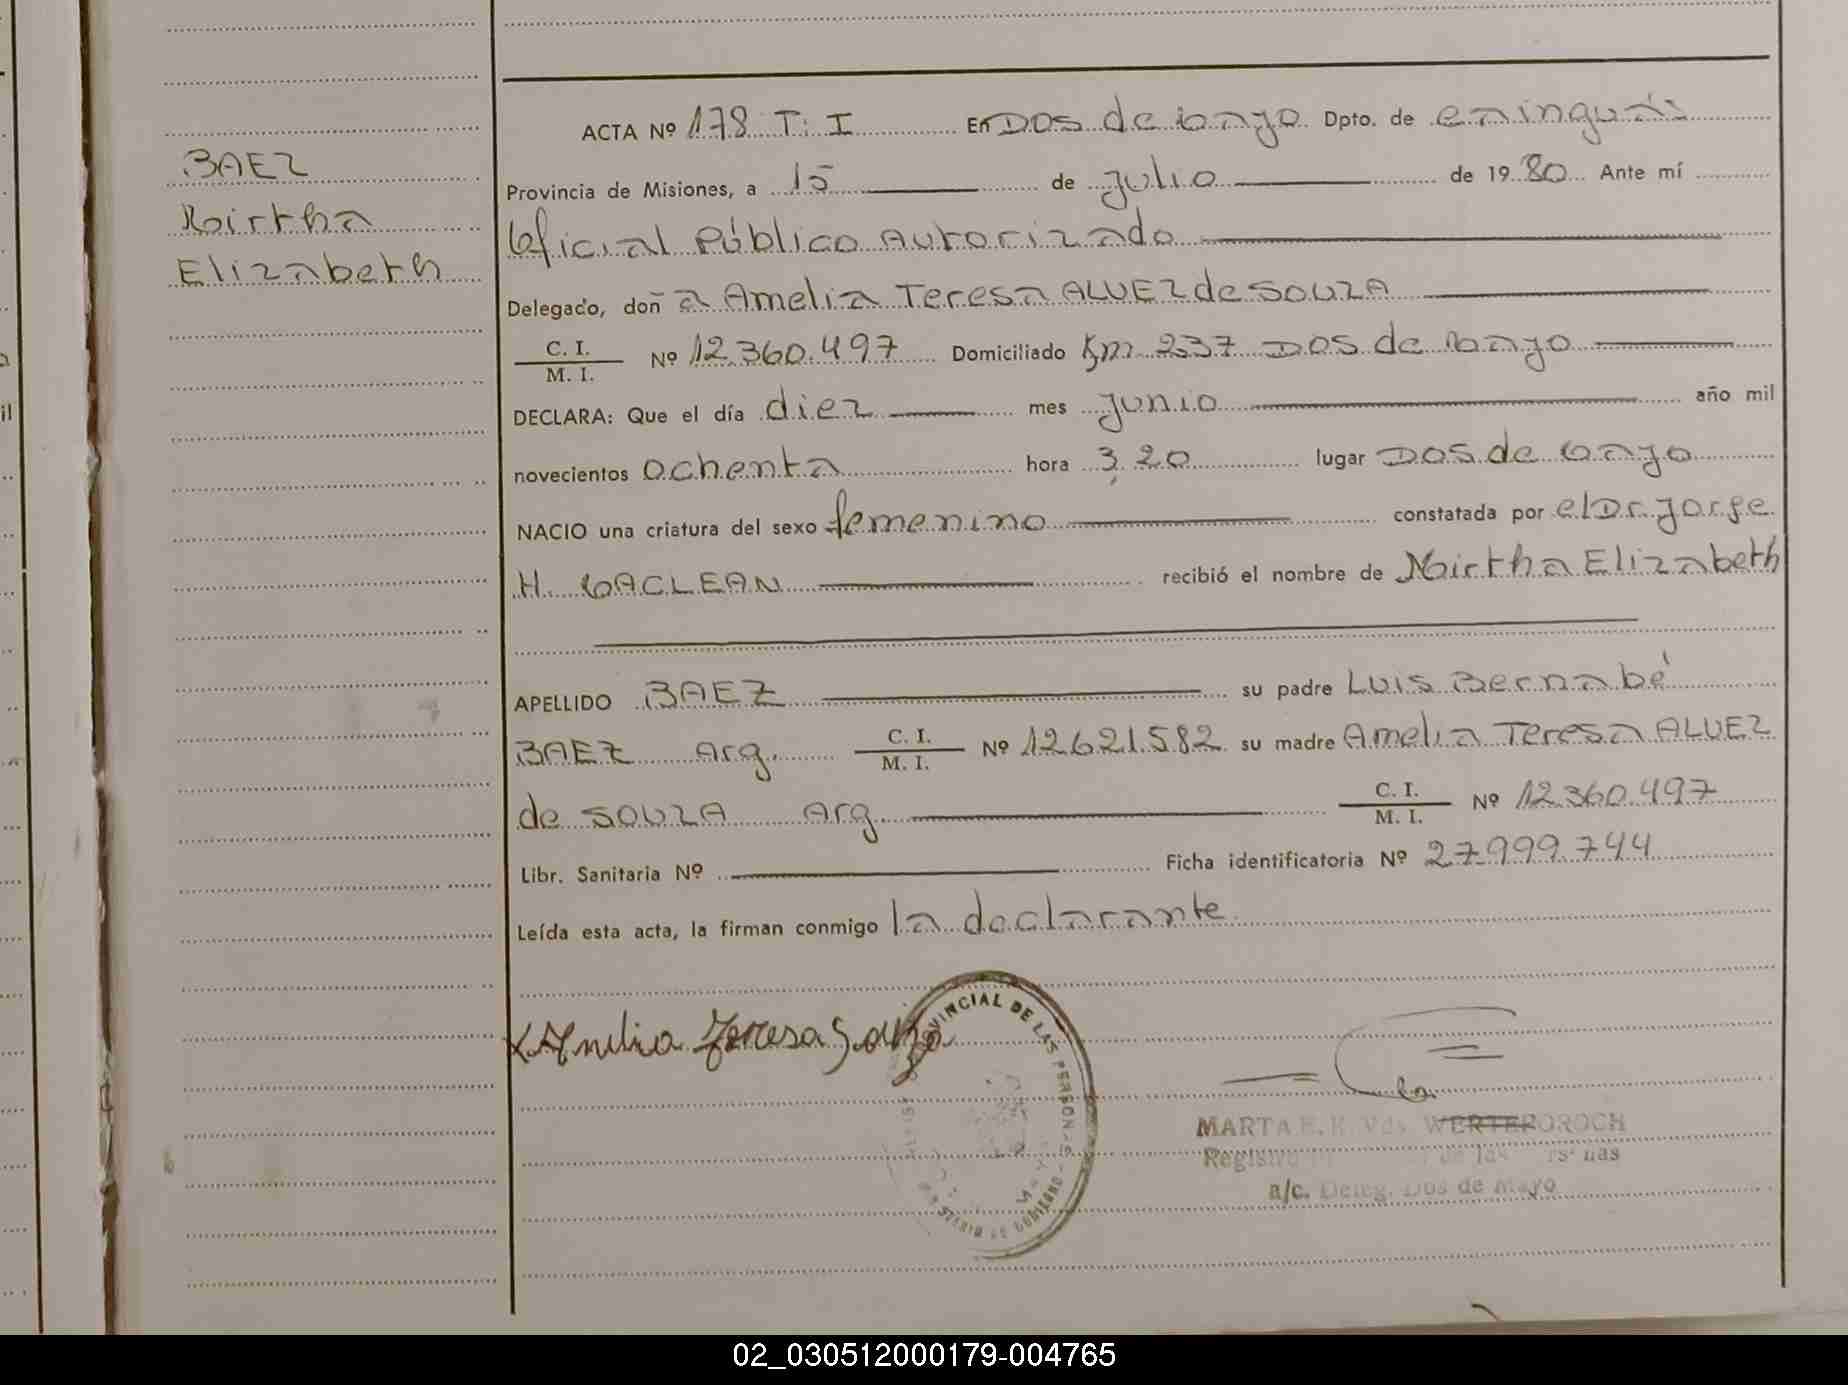 BAEZ
Mirtha
Elizabeth
ACTA Nº 178 T: I En Dos de Mayo Dpto. de Cainguás
Provincia de Misiones, a 15 de Julio de 1980 Ante mí
Oficial Público Autorizado
Delegado, doñ a Amelia Teresa ALVEZ de SOUZA
C. I.
M. I. Nº 12.360.497 Domiciliado Km 237 Dos de Mayo
DECLARA: Que el día diez mes junio año mil
novecientos ochenta hora 3,20 lugar Dos de Mayo
NACIO una criatura del sexo femenino constatada por el Dr. Jorge
H. MACLEAN recibió el nombre de Mirtha Elizabeth
APELLIDO BAEZ su padre Luis Bernabé
BAEZ Arg. C. I.
M. I. Nº 12.621.582 su madre Amelia Teresa ALVEZ
de SOUZA Arg. C. I.
M. I. Nº 12.360.497
Libr. Sanitaria Nº Ficha identificatoria Nº 27.999.744
Leída esta acta, la firman conmigo la declarante
Amelia Teresa Souza
VINCIAL DE LAS PERSON
DE GOBIERNO
MARTA E. K. Vda. WERTEROROCH
de las
a/c. Deleg. Dos de Mayo
02_030512000179-004765